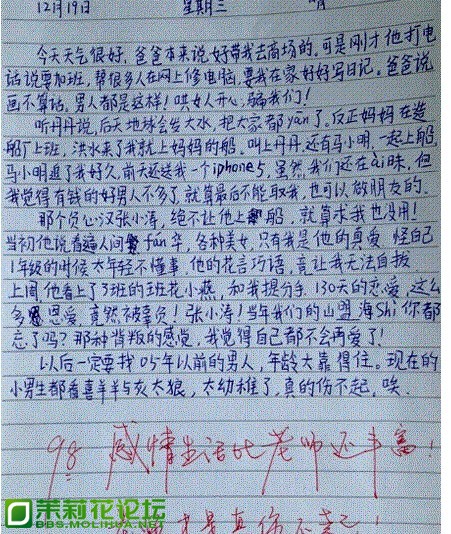 12月19日 星期三 晴
今天天气很好,爸爸本来说好带我去商场的,可是刚才他打电
话说要加班,帮很多人在网上修电脑,要我在家好好写日记。爸爸说
画不算话,男人都是这样!哄女人开心,骗我们!
听丹丹说,后天地球会发大水,把大家都yān了。反正妈妈在造
船厂上班,洪水来了我就上妈妈的船,叫上丹丹,还有马小明,一起上船,
马小明追了我好久,前天还送我一个iphone5,虽然,我们还在ài昧,但
我觉得有钱的好男人不多了,就算最后不能取我,也可以做朋友的。
那个负心汉张小涛,绝不让他上船,就算求我也没用!
当初他说看遍人间繁fán华,各种美女,只有我是他的真爱 怪自己
1年级的时候太年轻不懂事,他的花言巧语,竟让我无法自拔,
上周他看上了3班的班花小燕,和我提分手,130天的恋爱,这么
多恩爱,竟然被辜负!张小涛!当年我们的山盟海Shì你都
忘了吗?那种背叛的感觉,我觉得自己都不会再爱了!
以后一定要找05年以前的男人,年龄大靠得住。现在的
小男生都看喜羊羊与灰太狼,太幼稚了,真的伤不起,唉。
98 感情生活比老师还丰富!
茉莉花论坛
BBS.MOLIHUA.NET
才是真伤不起!